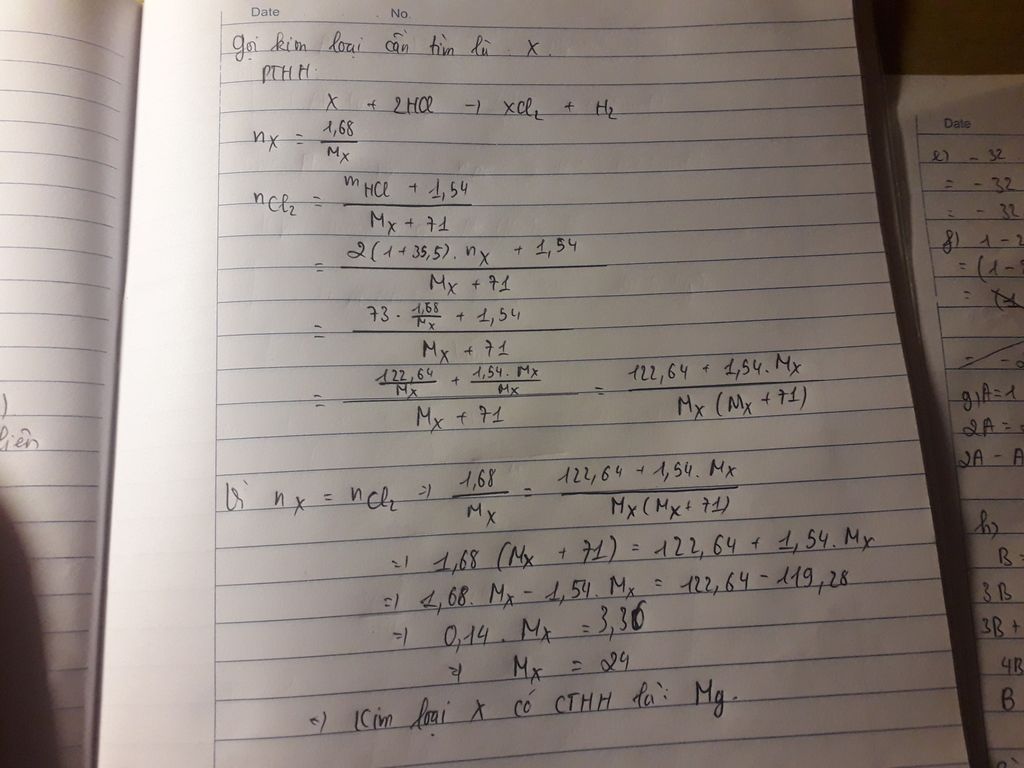 Date No.
Gọi kim loại cần tìm là X.
PTHH:
X + 2HCl → XCl₂ + H₂
nX = 1,68/MX
nCl₂ = (mHCl + 1,54)/(MX + 71)
= (2(1+35,5).nX + 1,54)/(MX + 71)
= (73 · 1,68/MX + 1,54)/(MX + 71)
= (122,64/MX + 1,54.MX/MX)/(MX + 71) = (122,64 + 1,54.MX)/(MX(MX + 71))
Vì nX = nCl₂ => 1,68/MX = (122,64 + 1,54.MX)/(MX(MX + 71))
=> 1,68(MX + 71) = 122,64 + 1,54.MX
=> 1,68.MX - 1,54.MX = 122,64 - 119,28
=> 0,14.MX = 3,36
=> MX = 24
=> Kim loại X có CTHH là: Mg.
)
liên
Date
e) - 32
= - 32
= - 32
= (1 -
g) A = 1
2A =
2A - A
h)
B =
3B
3B +
4B
B